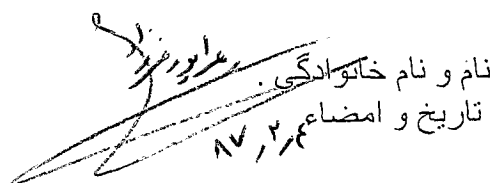 نام و نام خانوادگی .
تاریخ و امضاء ۸۷٫۲٫۴